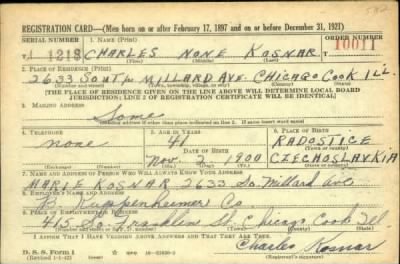 512
REGISTRATION CARD—(Men born on or after February 17, 1897 and on or before December 31, 1921)
SERIAL NUMBER 1. NAME (Print) ORDER NUMBER
1 1213 CHARLES NONE KOSNAR 10011
(First) (Middle) (Last)
2. PLACE OF RESIDENCE (Print)
2633 SOUTH MILLARD AVE. CHICAGO COOK ILL.
(Number and street) (Town, township, village, or city) (County) (State)
[THE PLACE OF RESIDENCE GIVEN ON THE LINE ABOVE WILL DETERMINE LOCAL BOARD
JURISDICTION; LINE 2 OF REGISTRATION CERTIFICATE WILL BE IDENTICAL]
3. MAILING ADDRESS
Same
[Mailing address if other than place indicated on line 2. If same insert word same]
4. TELEPHONE 5. AGE IN YEARS 6. PLACE OF BIRTH
none 41 RADOSTICE
DATE OF BIRTH
Nov. 2 1900 CZECHOSLAVKIA
7. NAME AND ADDRESS OF PERSON WHO WILL ALWAYS KNOW YOUR ADDRESS
MARIE KOSNAR 2633 So. Millard Ave
8. EMPLOYER'S NAME AND ADDRESS
B. Kuppenheimer Co
9. PLACE OF EMPLOYMENT OR BUSINESS
415 So. Franklin St. Chicago Cook Ill
I AFFIRM THAT I HAVE VERIFIED ABOVE ANSWERS AND THAT THEY ARE TRUE.
D. S. S. Form 1
(Revised 1-1-42)
Charles Kosnar
(Registrant's signature)